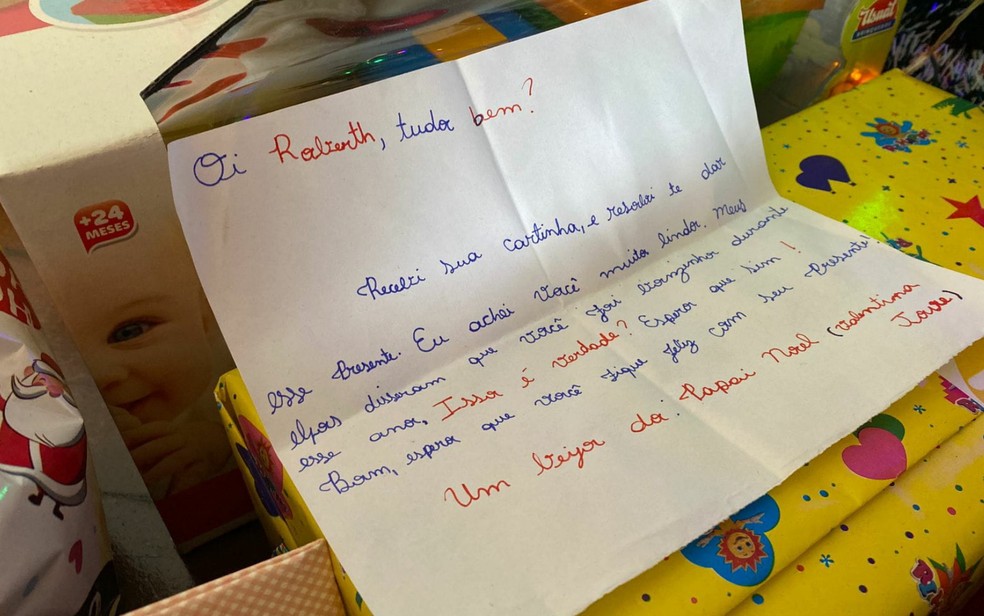 Oi Roberth, tudo bem?
Recebi sua cartinha, e resolvi te dar
esse presente. Eu achei você muito lindo. Meus
elfos disseram que você foi bonzinho durante
esse ano, Isso é verdade? Espero que sim!
Bom, espero que você fique feliz com seu presente!
Um beijo do: Papai Noel (Valentina
+24
MESES
Usual